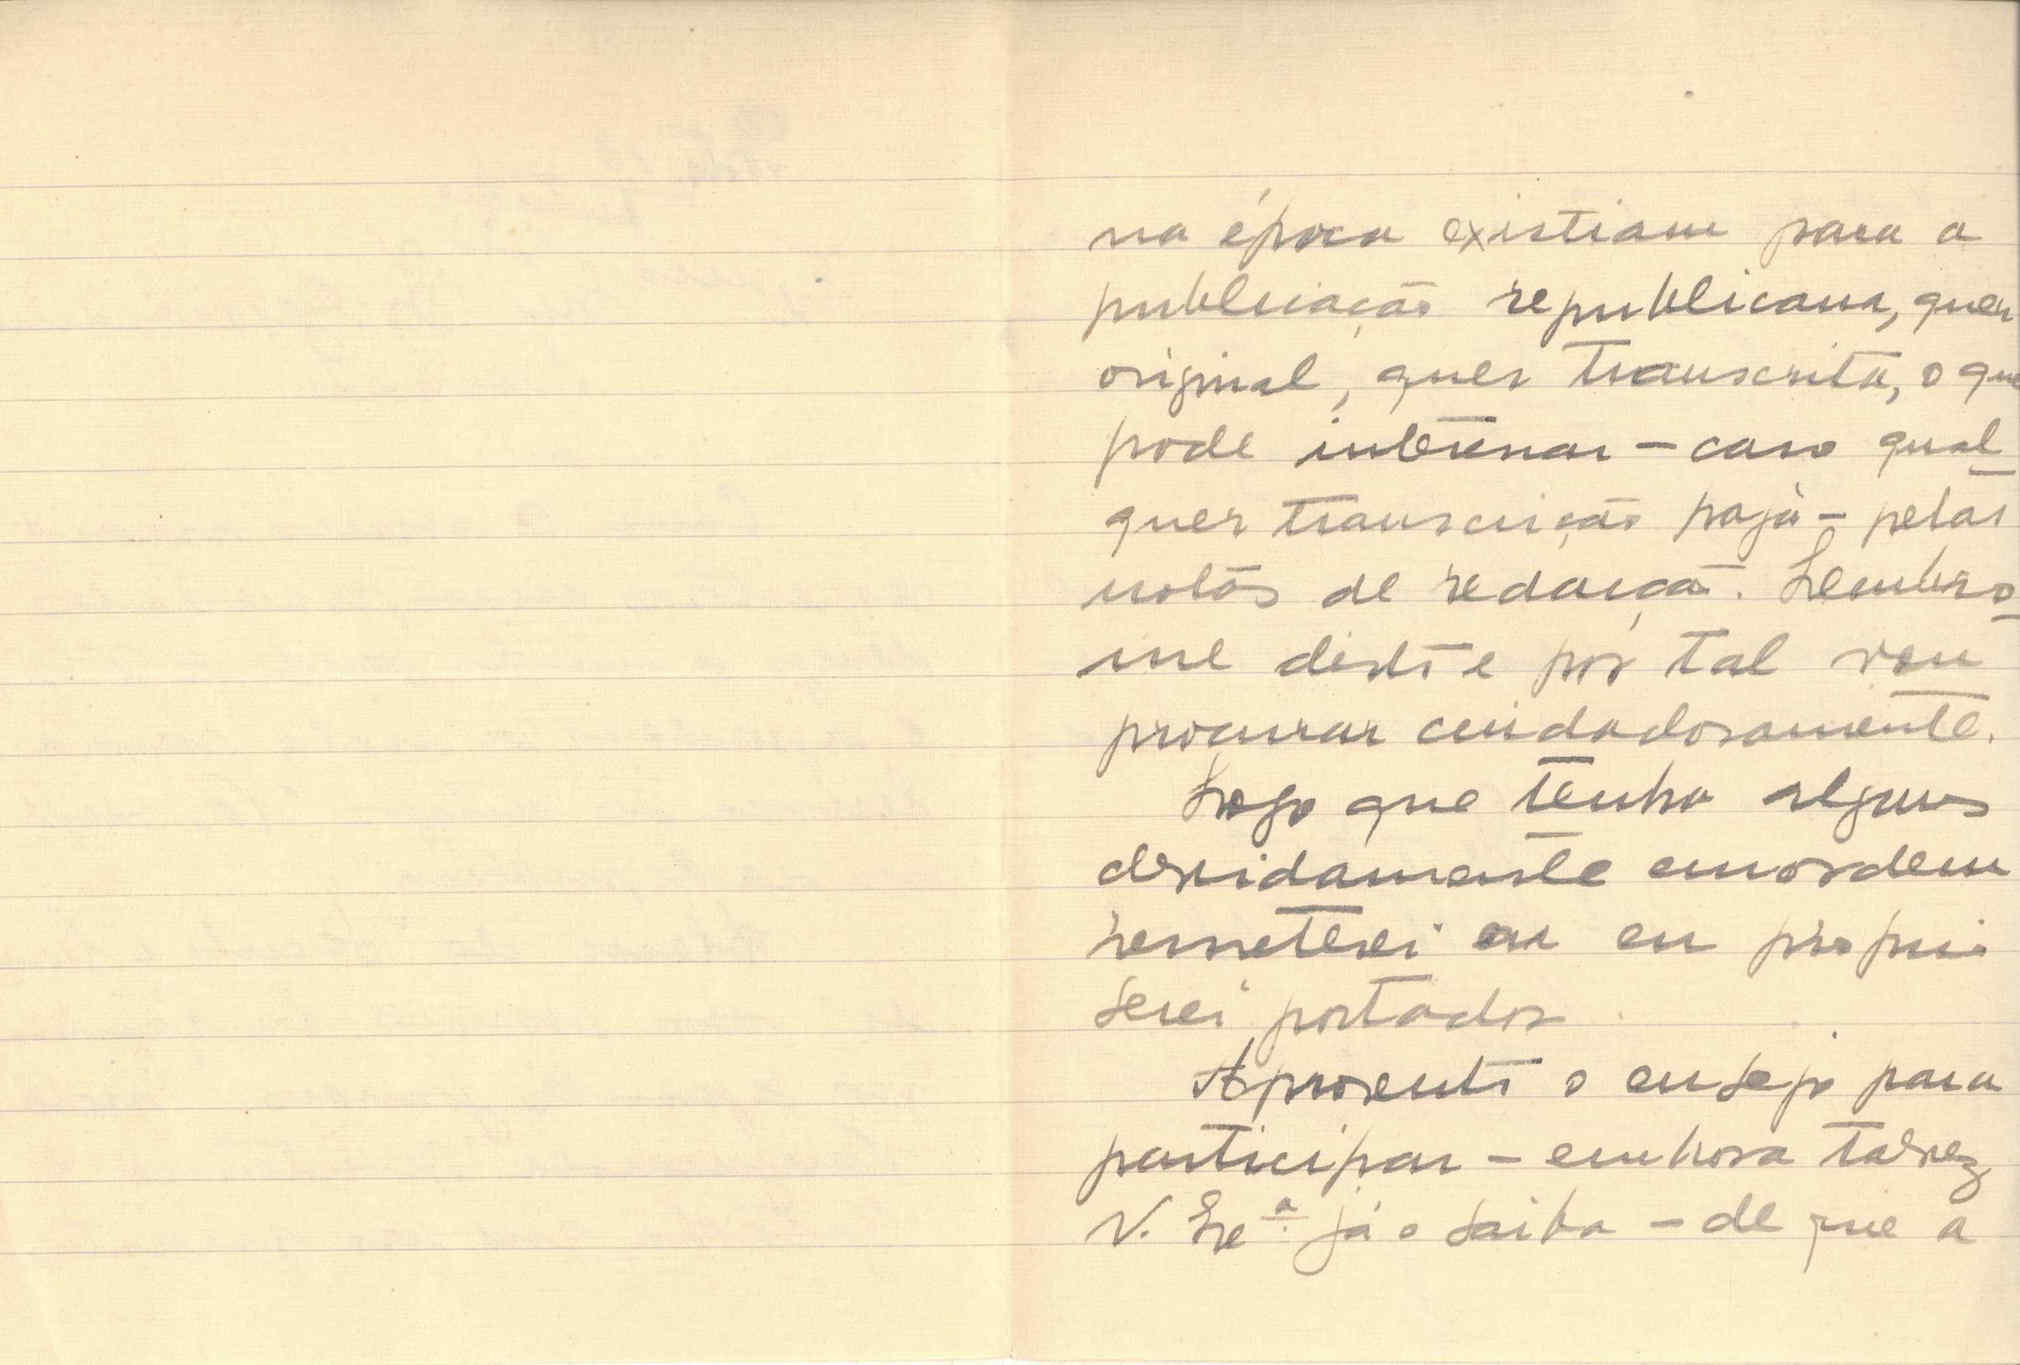 na época existiam para a
publicação republicana, quer
original, quer transcrita, o que
pode interessar – caso qual
quer transcrição haja – pelas
notas de redacção. Lembro
me disto e por tal vou
procurar cuidadosamente.
Logo que tenha alguns
devidamente em ordem
remeterei ou eu proprio
serei portador
Aproveito o ensejo para
participar – embora talvez
V. Exª. já o saiba – de que a